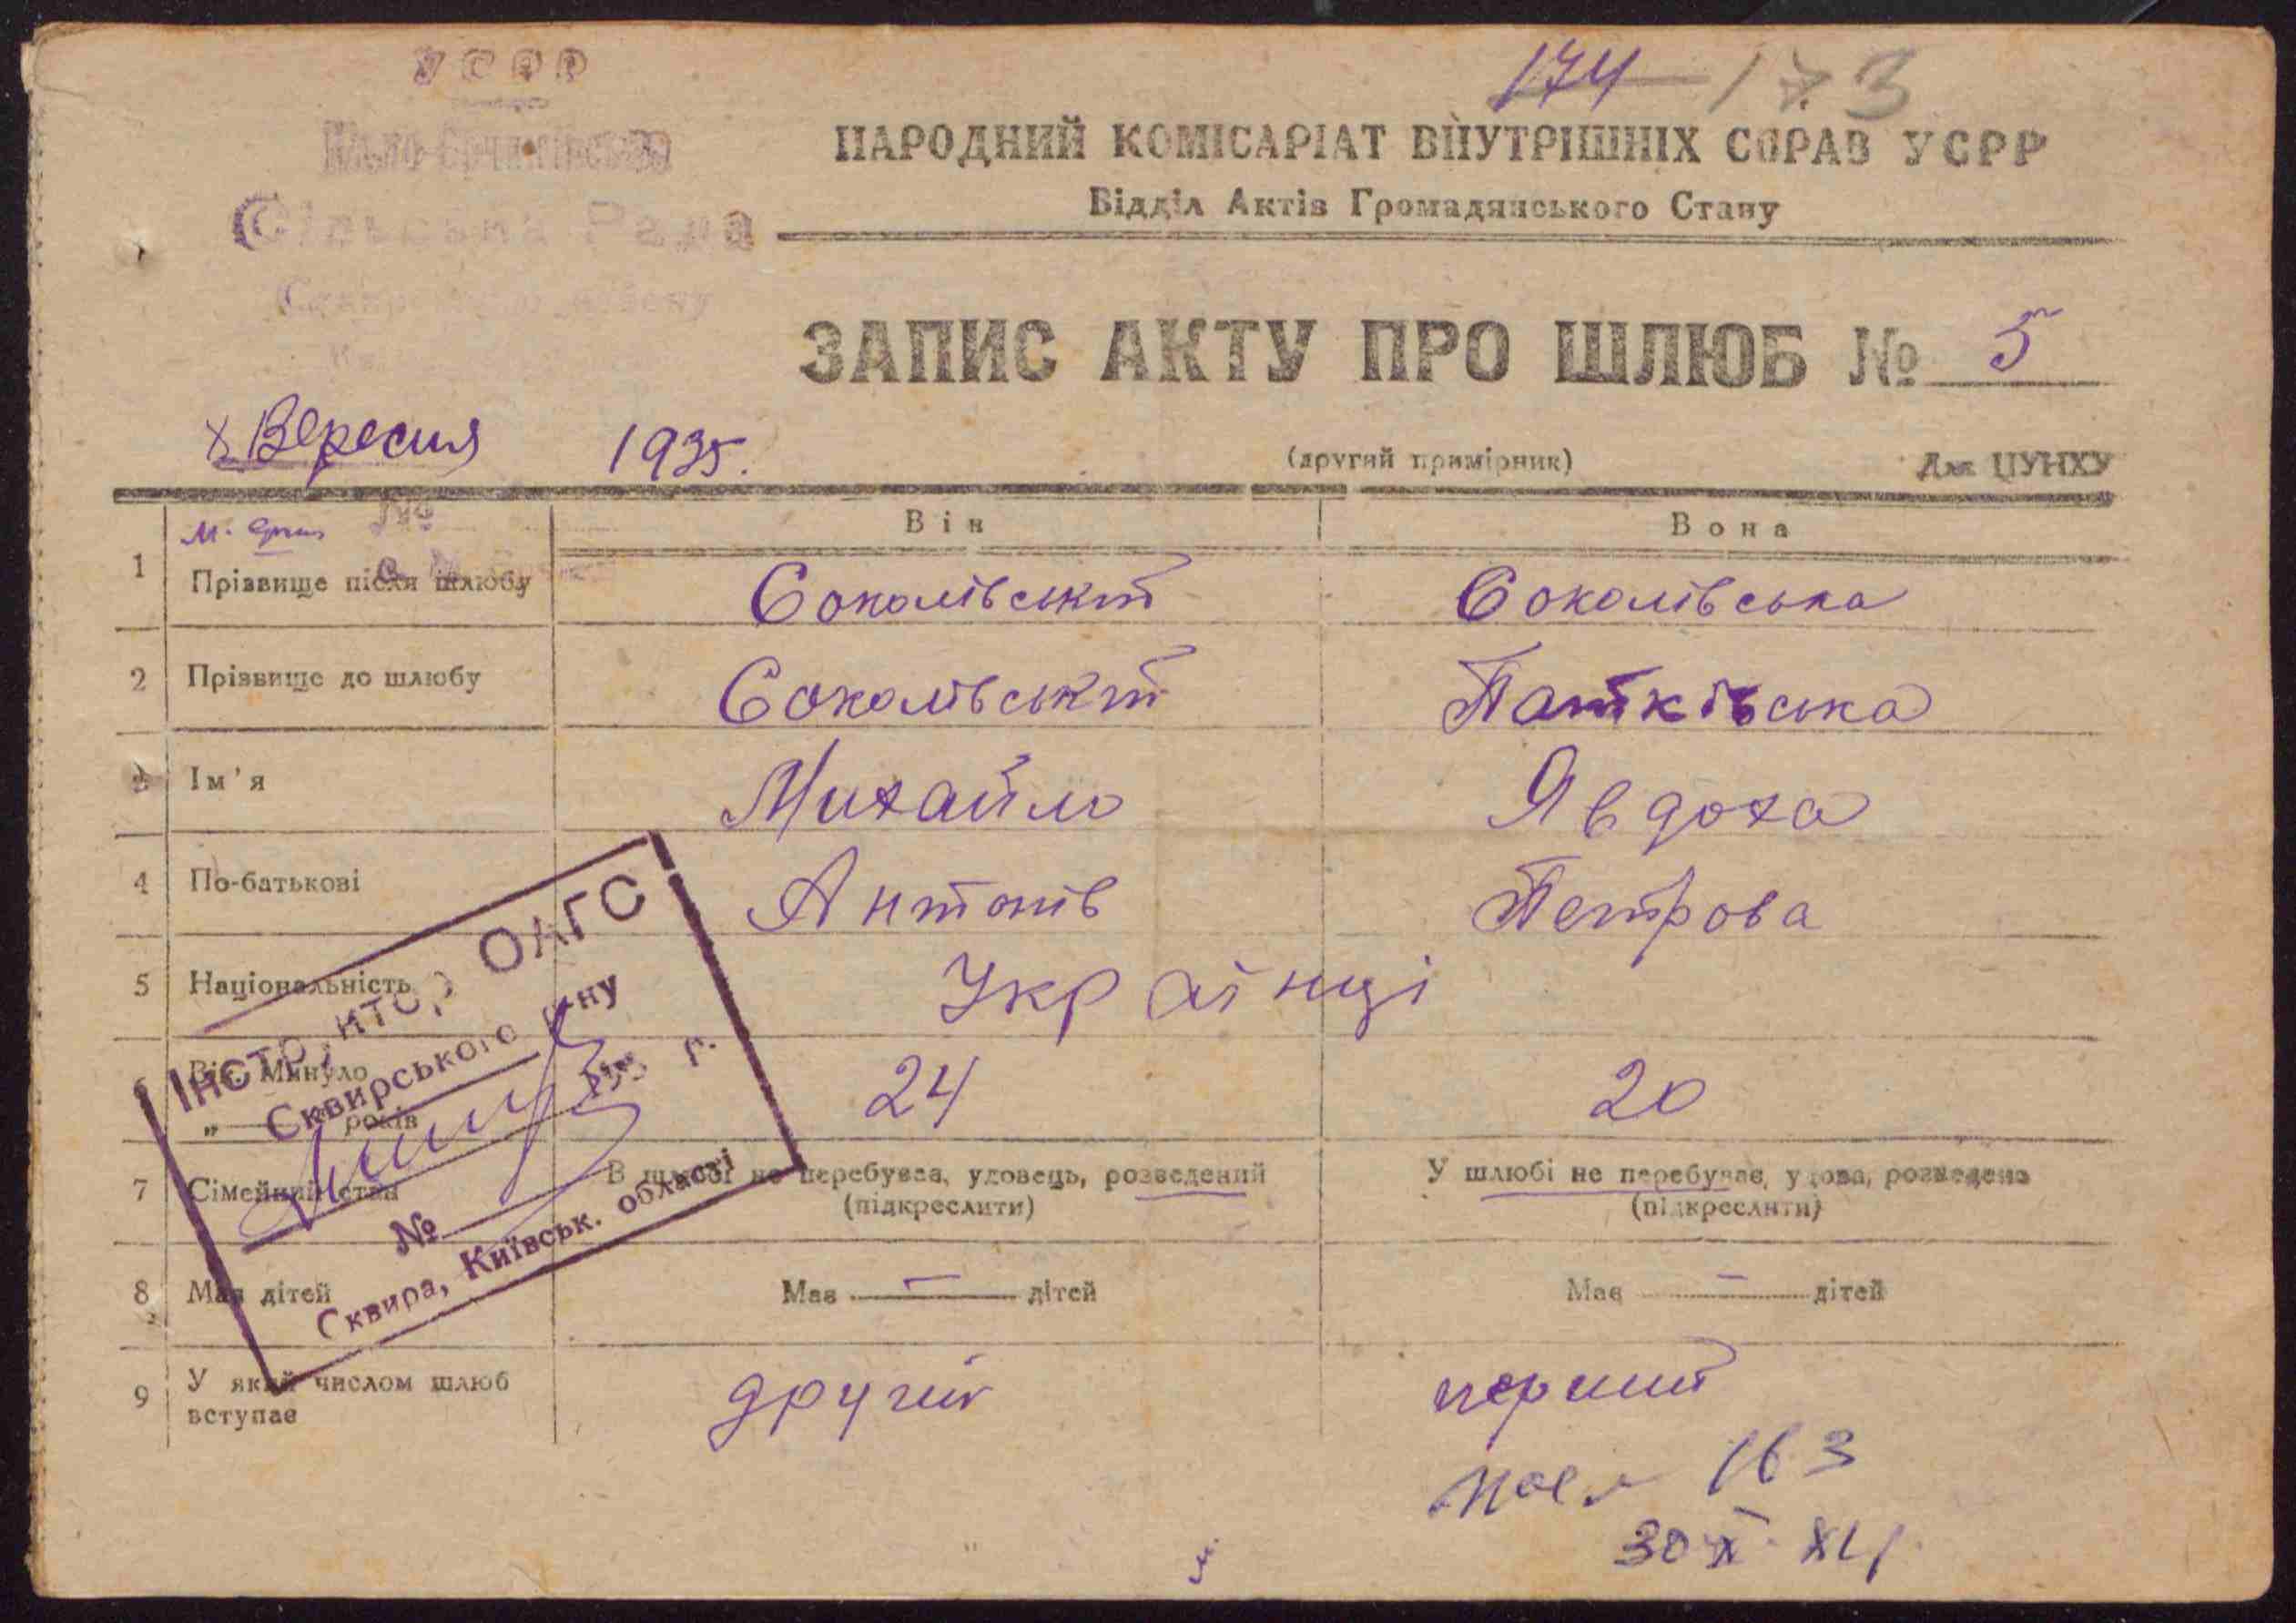 УСРР
174 173
НАРОДНИЙ КОМІСАРІАТ ВНУТРІШНІХ СПРАВ УСРР
Мало-Єрчиківська
Відділ Актів Громадянського Стану
Сільська Рада
Сквирського району
ЗАПИС АКТУ ПРО ШЛЮБ № 5
Вересня 1935.
(другий примірник) Для ЦУНХУ
№
Він Вона
1 Прізвище після шлюбу Соколівський Соколівська
2 Прізвище до шлюбу Соколівський Патківська
3 Ім'я Михайло Явдоха
4 По-батькові Антонів Петрова
5 Національність Українці
6 Вік. Минуло 24 20
„ років
7 Сімейний стан В шлюбі не перебував, удовець, розведений У шлюбі не перебуває, удова, розведена
(підкреслити) (підкреслити)
8 Має дітей Має — дітей Має — дітей
9 У який числом шлюб вступає другий перший
Інструктор ОАГС
Сквирського р-ну
193 р.
№
Сквира, Київськ. області
163
30 X XLI